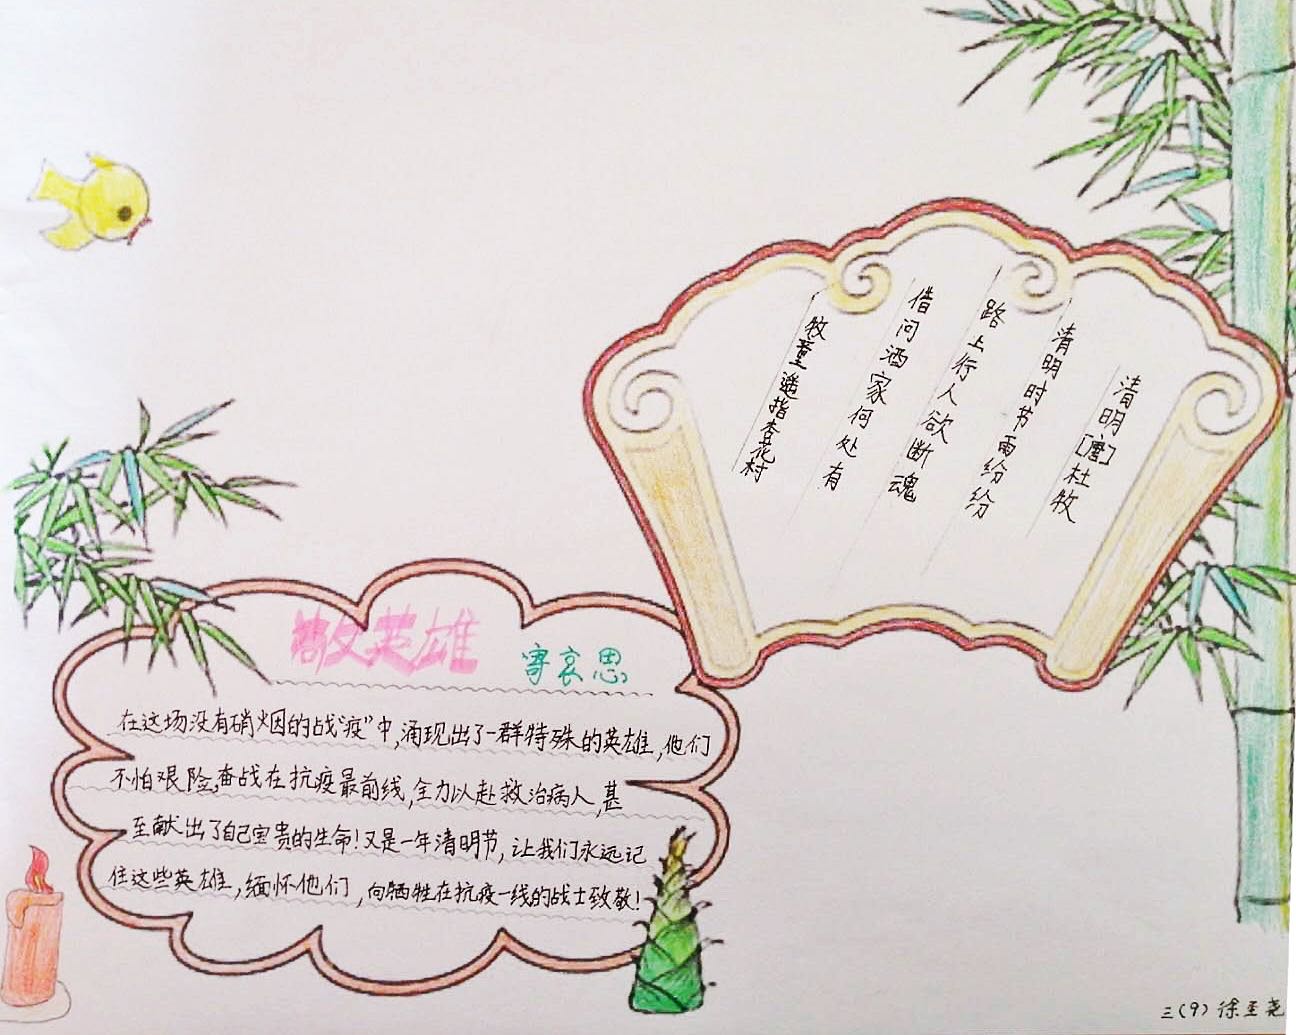 清明
[唐]杜牧
清明时节雨纷纷
路上行人欲断魂
借问酒家何处有
牧童遥指杏花村
敬英雄
寄哀思
在这场没有硝烟的战“疫”中,涌现出了一群特殊的英雄,他们
不怕艰险,奋战在抗疫最前线,全力以赴救治病人,甚
至献出了自己宝贵的生命!又是一年清明节,让我们永远记
住这些英雄,缅怀他们,向牺牲在抗疫一线的战士致敬!
三(9) 徐至尧